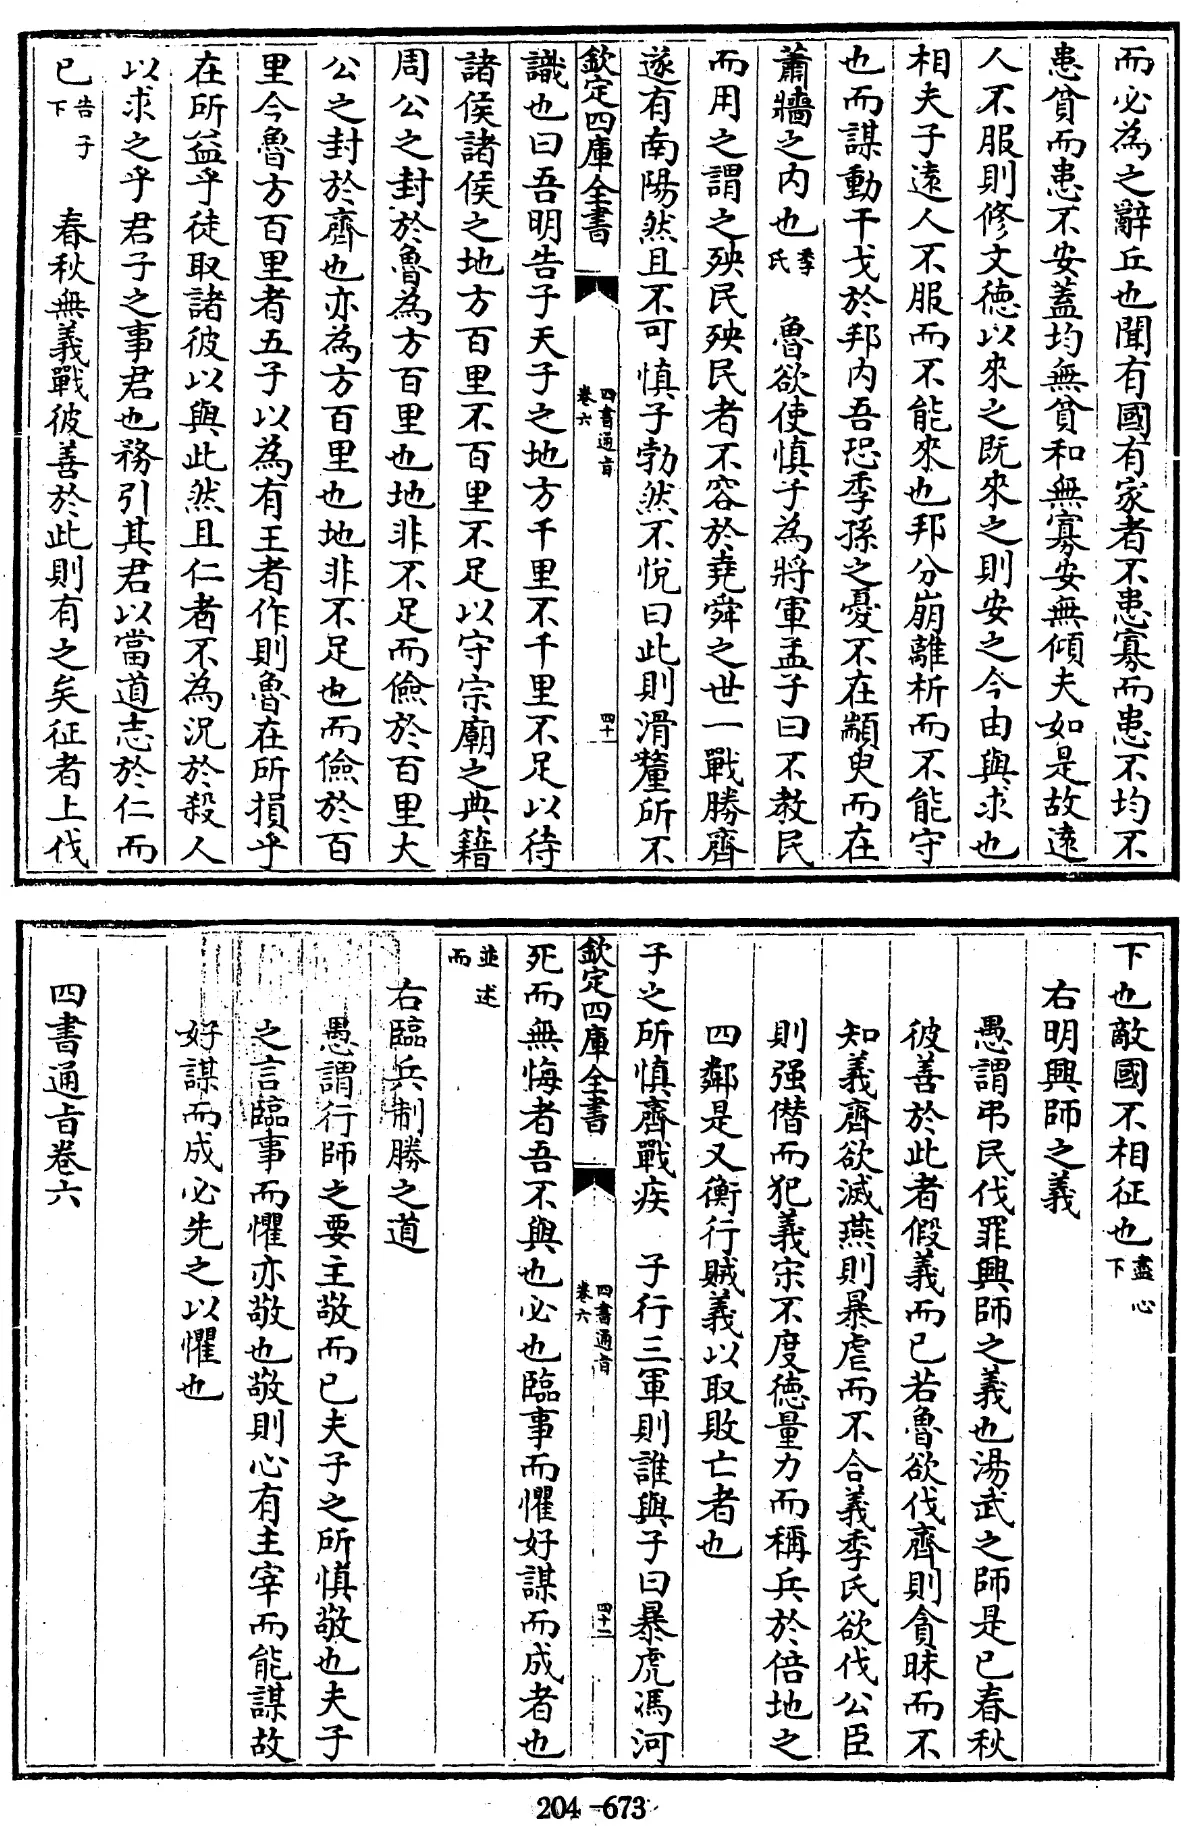 而必為之辭丘也聞有國有家者不患寡而患不均不
患貧而患不安蓋均無貧和無寡安無傾夫如是故遠
人不服則修文徳以來之既來之則安之今由與求也
相夫子遠人不服而不能來也邦分崩離析而不能守
也而謀動干戈於邦内吾恐季孫之憂不在顓臾而在
蕭牆之内也季氏　魯欲使慎子為將軍孟子曰不教民
而用之謂之殃民殃民者不容於堯舜之世一戰勝齊
遂有南陽然且不可慎子勃然不悅曰此則滑釐所不
欽定四庫全書　四書通旨卷六　四十一
識也曰吾明告子天子之地方千里不千里不足以待
諸侯諸侯之地方百里不百里不足以守宗廟之典籍
周公之封於魯為方百里也地非不足而儉於百里大
公之封於齊也亦為方百里也地非不足也而儉於百
里今魯方百里者五子以為有王者作則魯在所損乎
在所益乎徒取諸彼以與此然且仁者不為況於殺人
以求之乎君子之事君也務引其君以當道志於仁而
已告子下　春秋無義戰彼善於此則有之矣征者上伐
下也敵國不相征也盡心下
右明興師之義
愚謂弔民伐罪興師之義也湯武之師是已春秋
彼善於此者假義而已若魯欲伐齊則貪昧而不
知義齊欲滅燕則暴虐而不合義季氏欲伐公臣
則强僭而犯義宋不度徳量力而稱兵於倍地之
四鄰是又衡行賊義以取敗亡者也
子之所慎齊戰疾　子行三軍則誰與子曰暴虎馮河
欽定四庫全書　四書通旨卷六　四十二
死而無悔者吾不與也必也臨事而懼好謀而成者也
並述而
右臨兵制勝之道
愚謂行師之要主敬而已夫子之所慎敬也夫子
之言臨事而懼亦敬也敬則心有主宰而能謀故
好謀而成必先之以懼也
四書通旨卷六
204-673